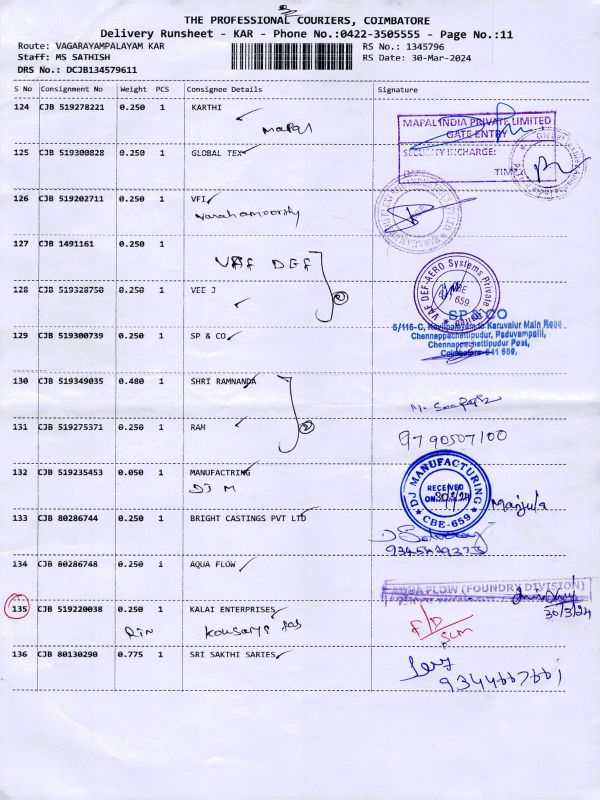 THE PROFESSIONAL COURIERS, COIMBATORE
Delivery Runsheet - KAR - Phone No.:0422-3505555 - Page No.:11
Route: VAGARAYAMPALAYAM KAR RS No.: 1345796
Staff: MS SATHISH RS Date: 30-Mar-2024
DRS No.: DCJB134579611
S No Consignment No Weight PCS Consignee Details Signature
124 CJB 519278221 0.250 1 KARTHI
Mapal
MAPAL INDIA PRIVATE LIMITED
GATE ENTRY
125 CJB 519300828 0.250 1 GLOBAL TEX SECURITY INCHARGE:
TIME
126 CJB 519202711 0.250 1 VFI
Varahamoorthy
127 CJB 1491161 0.250 1
VAF DEF
VAF DEF-AERO Systems Private
128 CJB 519328750 0.250 1 VEE J
659.
SP & CO
129 CJB 519300739 0.250 1 SP & CO 5/115-C, Kovilpalayam to Karuvalur Main Road
Chennappachettipudur, Paduvampalli,
Chennappachettipudur Post,
Coimbatore-641 659,
130 CJB 519349035 0.480 1 SHRI RAMNANDA
131 CJB 519275371 0.250 1 RAM 9790507100
132 CJB 519235453 0.050 1 MANUFACTRING
DJ M
DJ MANUFACTURING
RECEIVED
ON
CBE-659
Manjula
133 CJB 80286744 0.250 1 BRIGHT CASTINGS PVT LTD
134 CJB 80286748 0.250 1 AQUA FLOW
AQUA FLOW (FOUNDRY DIVISION)
30/3/24
135 CJB 519220038 0.250 1 KALAI ENTERPRISES
136 CJB 80130290 0.775 1 SRI SAKTHI SARIES
9344667661